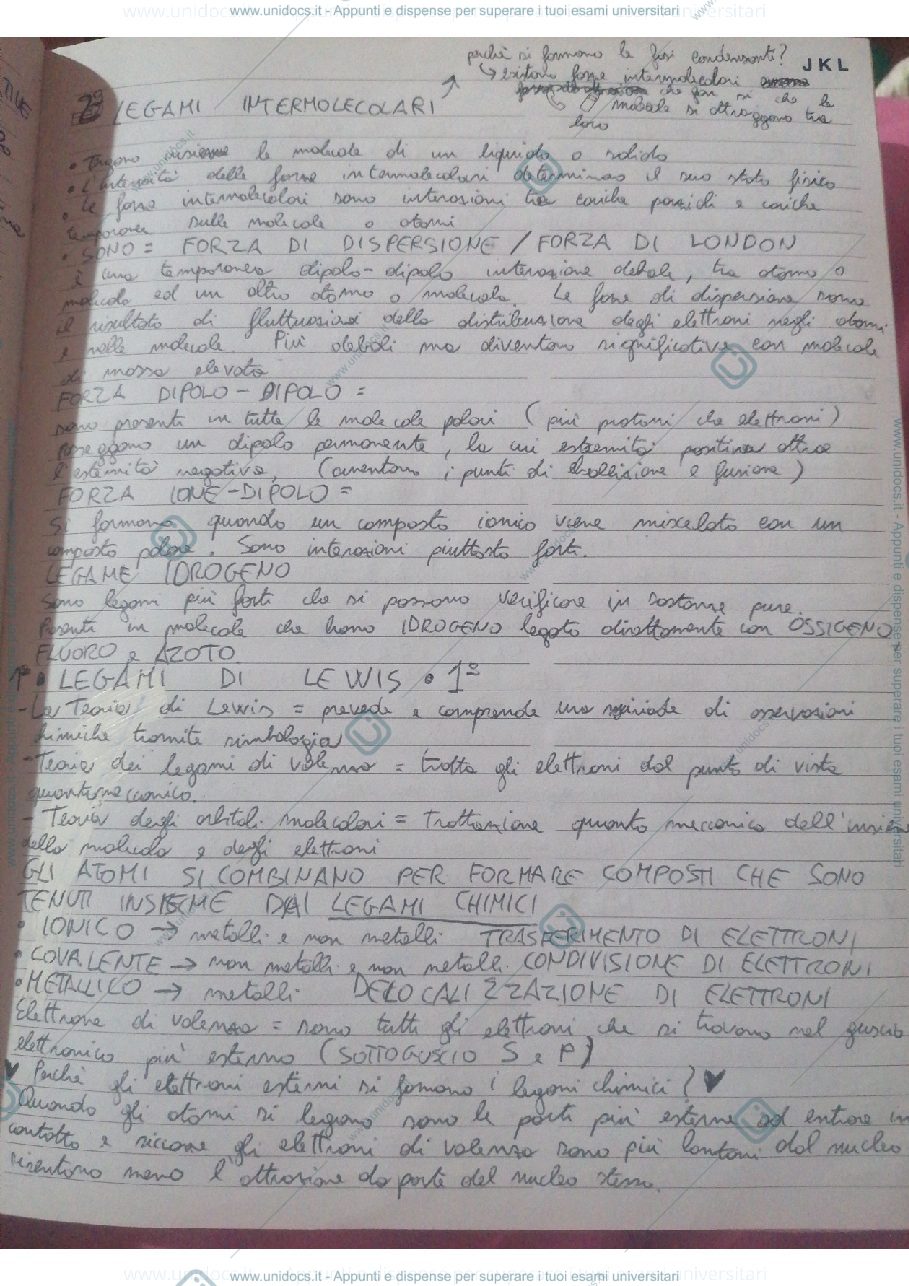 www.unidocs.it - Appunti e dispense per superare i tuoi esami universitari
JKL
perchè si formano le fasi condensanti?
↳ esistono forze intermolecolari
che fan si che le
molecole si attraggono tra
loro
2° LEGAMI INTERMOLECOLARI
• Tengono insieme le molecole di un liquido o solido
• L'intensità delle forze intermolecolari determinano il suo stato fisico
• Le forze intermolecolari sono interazioni tra cariche parziali e cariche
temporanee sulle molecole o atomi
• SONO = FORZA DI DISPERSIONE / FORZA DI LONDON
è una temporanea dipolo-dipolo interazione debole, tra atomo o
molecola ed un altro atomo o molecola. Le forze di dispersione sono
il risultato di fluttuazioni della distribuzione degli elettroni negli atomi
e nelle molecole. Più deboli ma diventano significative con molecole
di massa elevata
FORZA DIPOLO-DIPOLO =
sono presenti in tutte le molecole polari (più protoni che elettroni)
posseggono un dipolo permanente, la cui estremità positiva attrae
l'estremità negativa. (aumentano i punti di ebollizione e fusione)
FORZA IONE-DIPOLO =
Si formano quando un composto ionico viene miscelato con un
composto polare. Sono interazioni piuttosto forti.
LEGAME IDROGENO
Sono legami più forti che si possono verificare in sostanze pure.
Presenti in molecole che hanno IDROGENO legato direttamente con OSSIGENO
FLUORO e AZOTO.
1° • LEGAMI DI LEWIS • 1°
- La Teoria di Lewis = prevede e comprende una miriade di osservazioni
chimiche tramite simbologia
- Teoria dei legami di valenza = tratta gli elettroni dal punto di vista
quantomeccanico.
- Teoria degli orbitali molecolari = Trattazione quanto meccanica dell'insieme
della molecola e degli elettroni
GLI ATOMI SI COMBINANO PER FORMARE COMPOSTI CHE SONO
TENUTI INSIEME DAI LEGAMI CHIMICI
• IONICO → metalli e non metalli TRASFERIMENTO DI ELETTRONI
• COVALENTE → non metalli e non metalli CONDIVISIONE DI ELETTRONI
• METALLICO → metalli DELOCALIZZAZIONE DI ELETTRONI
Elettrone di valenza = sono tutti gli elettroni che si trovano nel guscio
elettronico più esterno (SOTTOGUSCIO S e P)
♥ Perchè gli elettroni esterni si formano i legami chimici? ♥
Quando gli atomi si legano sono le parti più esterne ad entrare in
contatto e siccome gli elettroni di valenza sono più lontani dal nucleo
risentono meno l'attrazione da parte del nucleo stesso.
www.unidocs.it - Appunti e dispense per superare i tuoi esami universitari